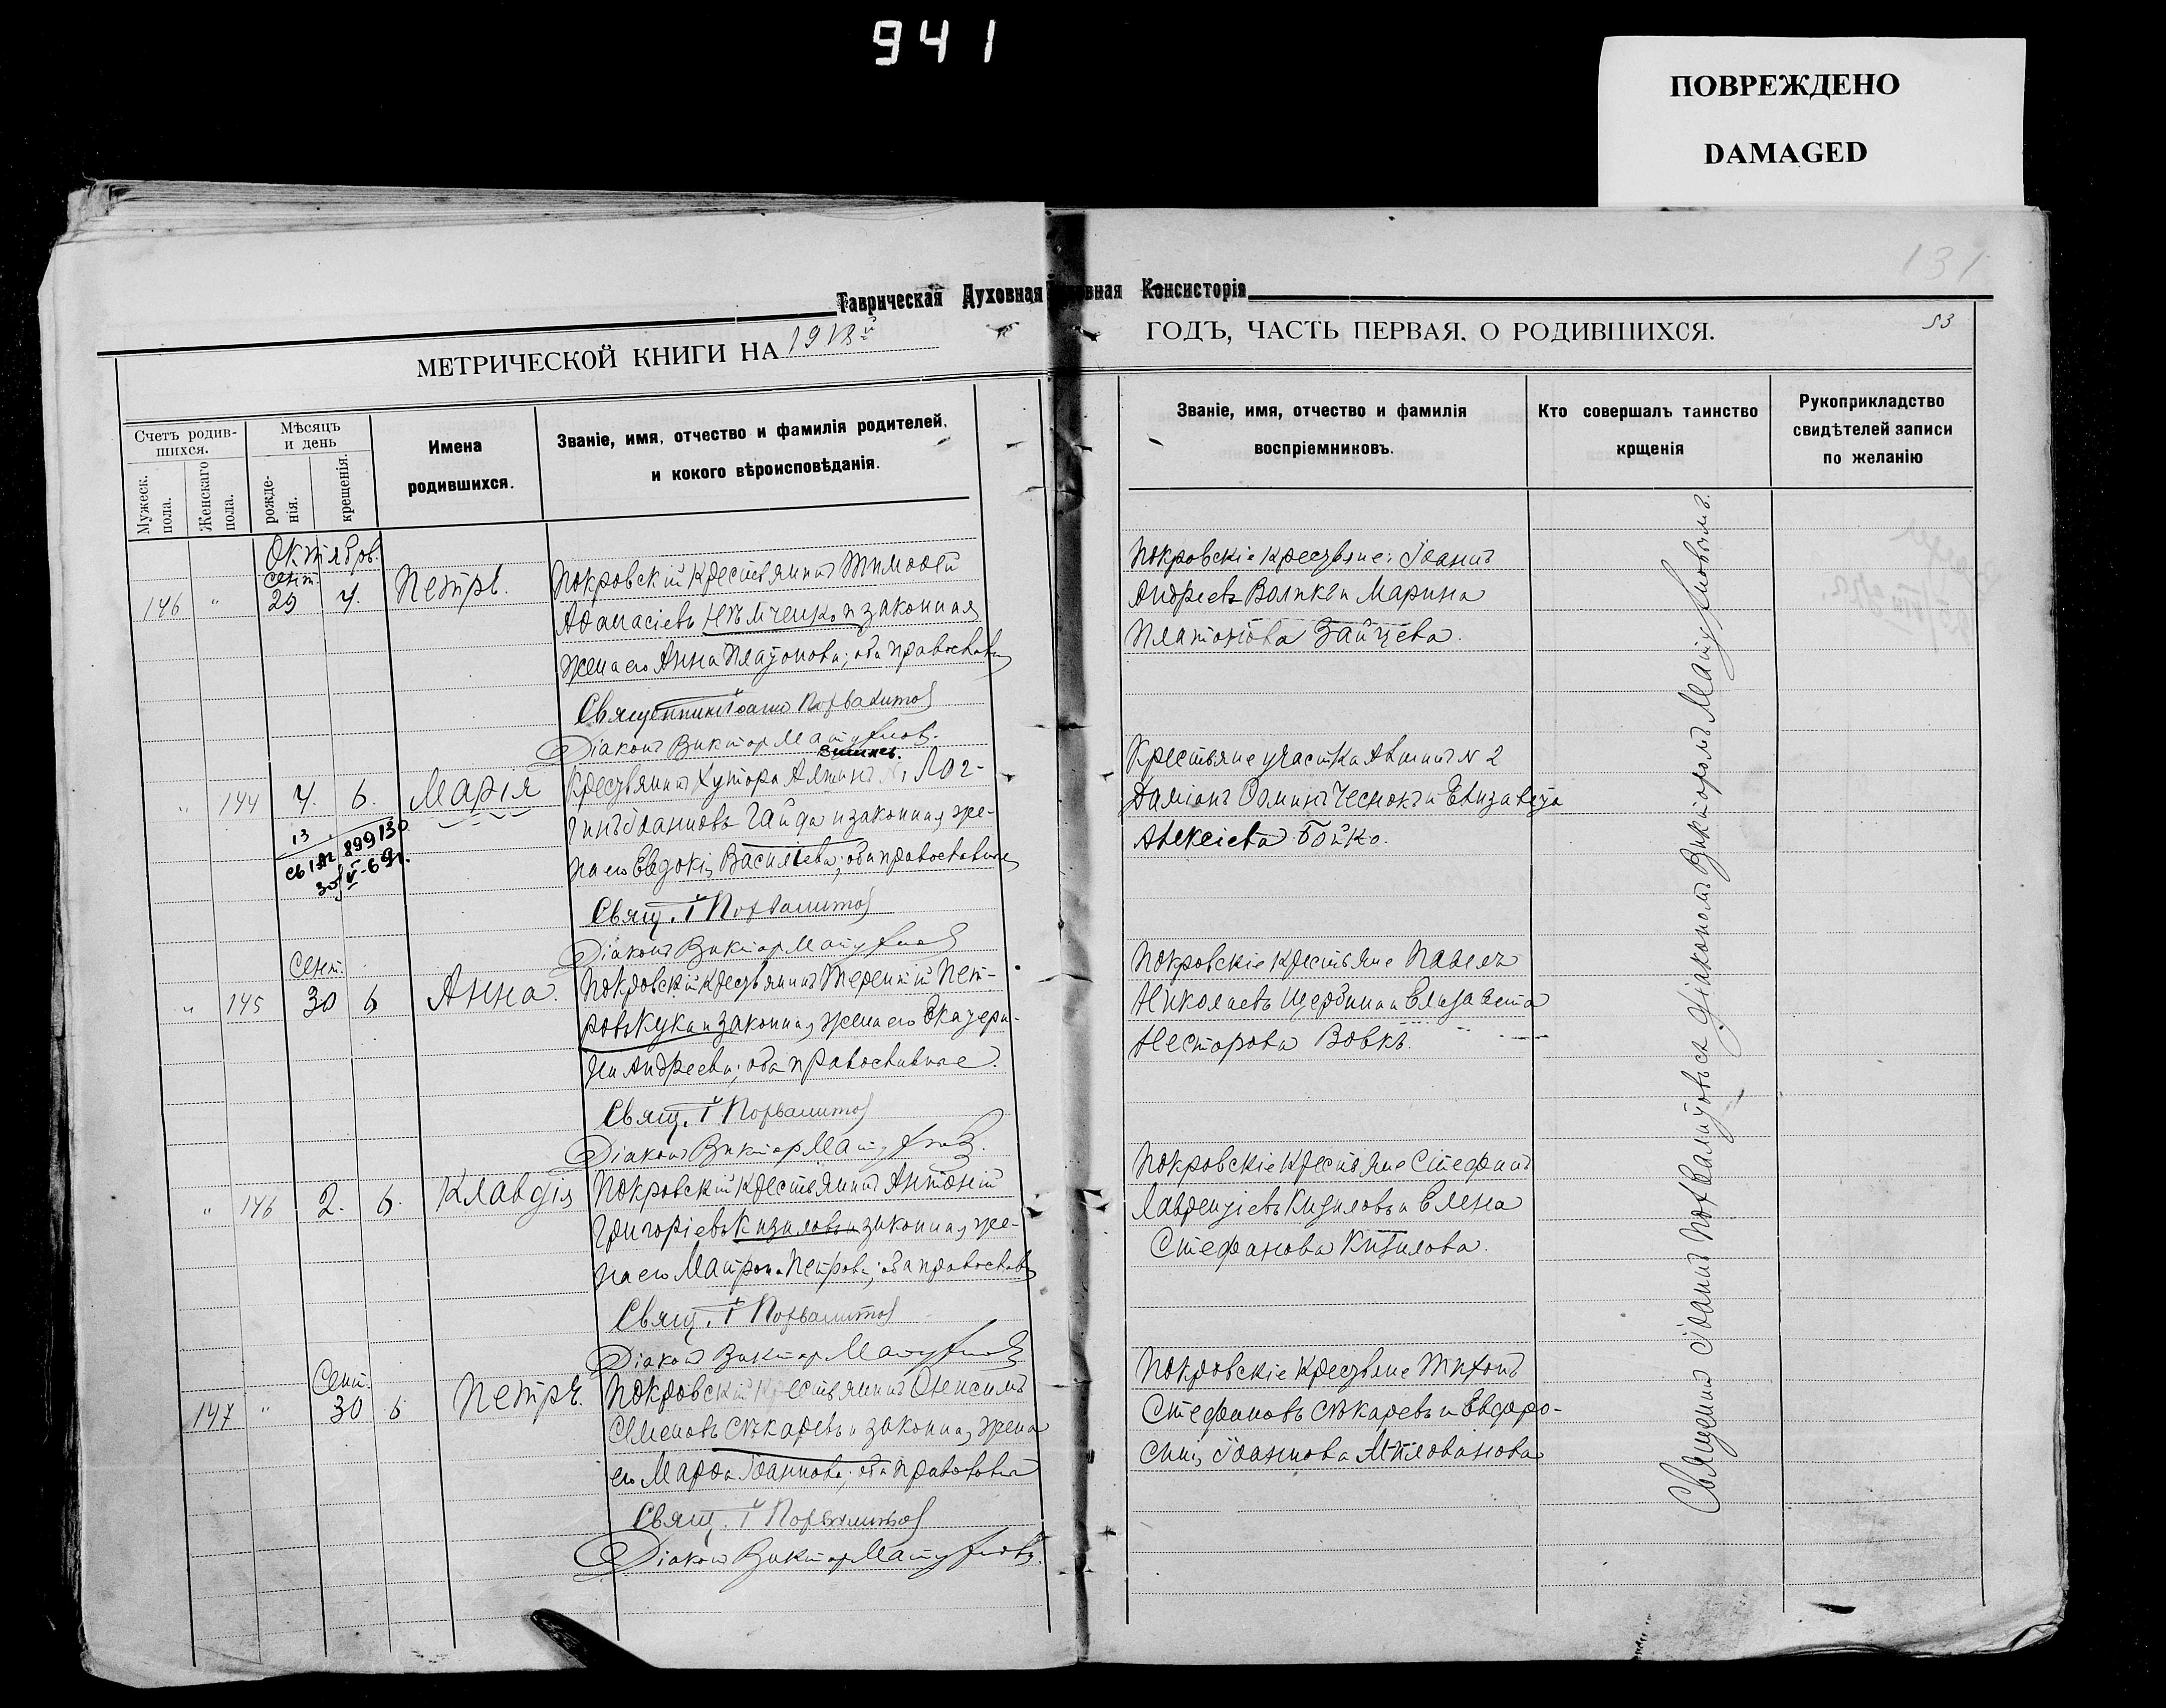 941
ПОВРЕЖДЕНО
DAMAGED
131
Таврическая Духовная
вная Консисторія
МЕТРИЧЕСКОЙ КНИГИ НА 1918й
ГОДЪ, ЧАСТЬ ПЕРВАЯ. О РОДИВШИХСЯ.
53
Счетъ родив-
шихся.
Мужеск.
пола.
Женскаго
пола.
Мѣсяцъ
и день
рожде-
нія.
крещенія.
Имена
родившихся.
Званіе, имя, отчество и фамилія родителей,
и кокого вѣроисповѣданія.
Званіе, имя, отчество и фамилія
воспріемниковъ.
Кто совершалъ таинство
крщенія
Рукоприкладство
свидѣтелей записи
по желанію
Октябрь.
сент.
146 " 25 4. Петръ.
Покровскій крестьянинъ Тимоѳей
Аѳанасіевъ Нѣмченко и законная
жена его Анна Платонова; оба православн
Священникъ Іоаннъ
Діаконъ Викторъ
Покровскіе крестьяне: Іоаннъ
Андреевъ Воликъ и Марина
Платонова Зайцева.
" 144 4. 6. Марія
13
30/V-69г.
Крестьянинъ хутора Лог-
гинъ Іоанновъ Гайда и законная же-
на его Евдокія Васильева; оба православные
Свящ. І
Діаконъ Викторъ
Крестьяне участка № 2
Даміанъ Чеснокъ и Елизавета
Алексіева Бойко.
Сент.
" 145 30 6 Анна.
Покровскій крестьянинъ Терентій Пет-
ровъ Кука и законная жена его Екатери-
на Андреева; оба православные.
Свящ. І
Діаконъ Викторъ
Покровскіе крестьяне Павелъ
Николаевъ Щербина и Елизавета
Несторова Вовкъ.
" 146 2. 6. Клавдія
Покровскій крестьянинъ Антоній
Григоріевъ Кизиловъ и законная же-
на его Матрона Петрова; оба православн
Свящ. І
Діаконъ Викторъ
Покровскіе крестьяне Стефанъ
Лаврентіевъ Кизиловъ и Елена
Стефанова Кизилова.
Сент.
147 " 30 6 Петръ.
Покровскій крестьянинъ Онисимъ
Семеновъ Сѣкаревъ и законная жена
его Марѳа Іоаннова; оба православн
Свящ. І
Діаконъ Викторъ
Покровскіе крестьяне Тихонъ
Стефановъ Сѣкаревъ и Евфро-
синія Іоаннова Милованова
Священ Іоаннъ съ діакономъ Викторомъ